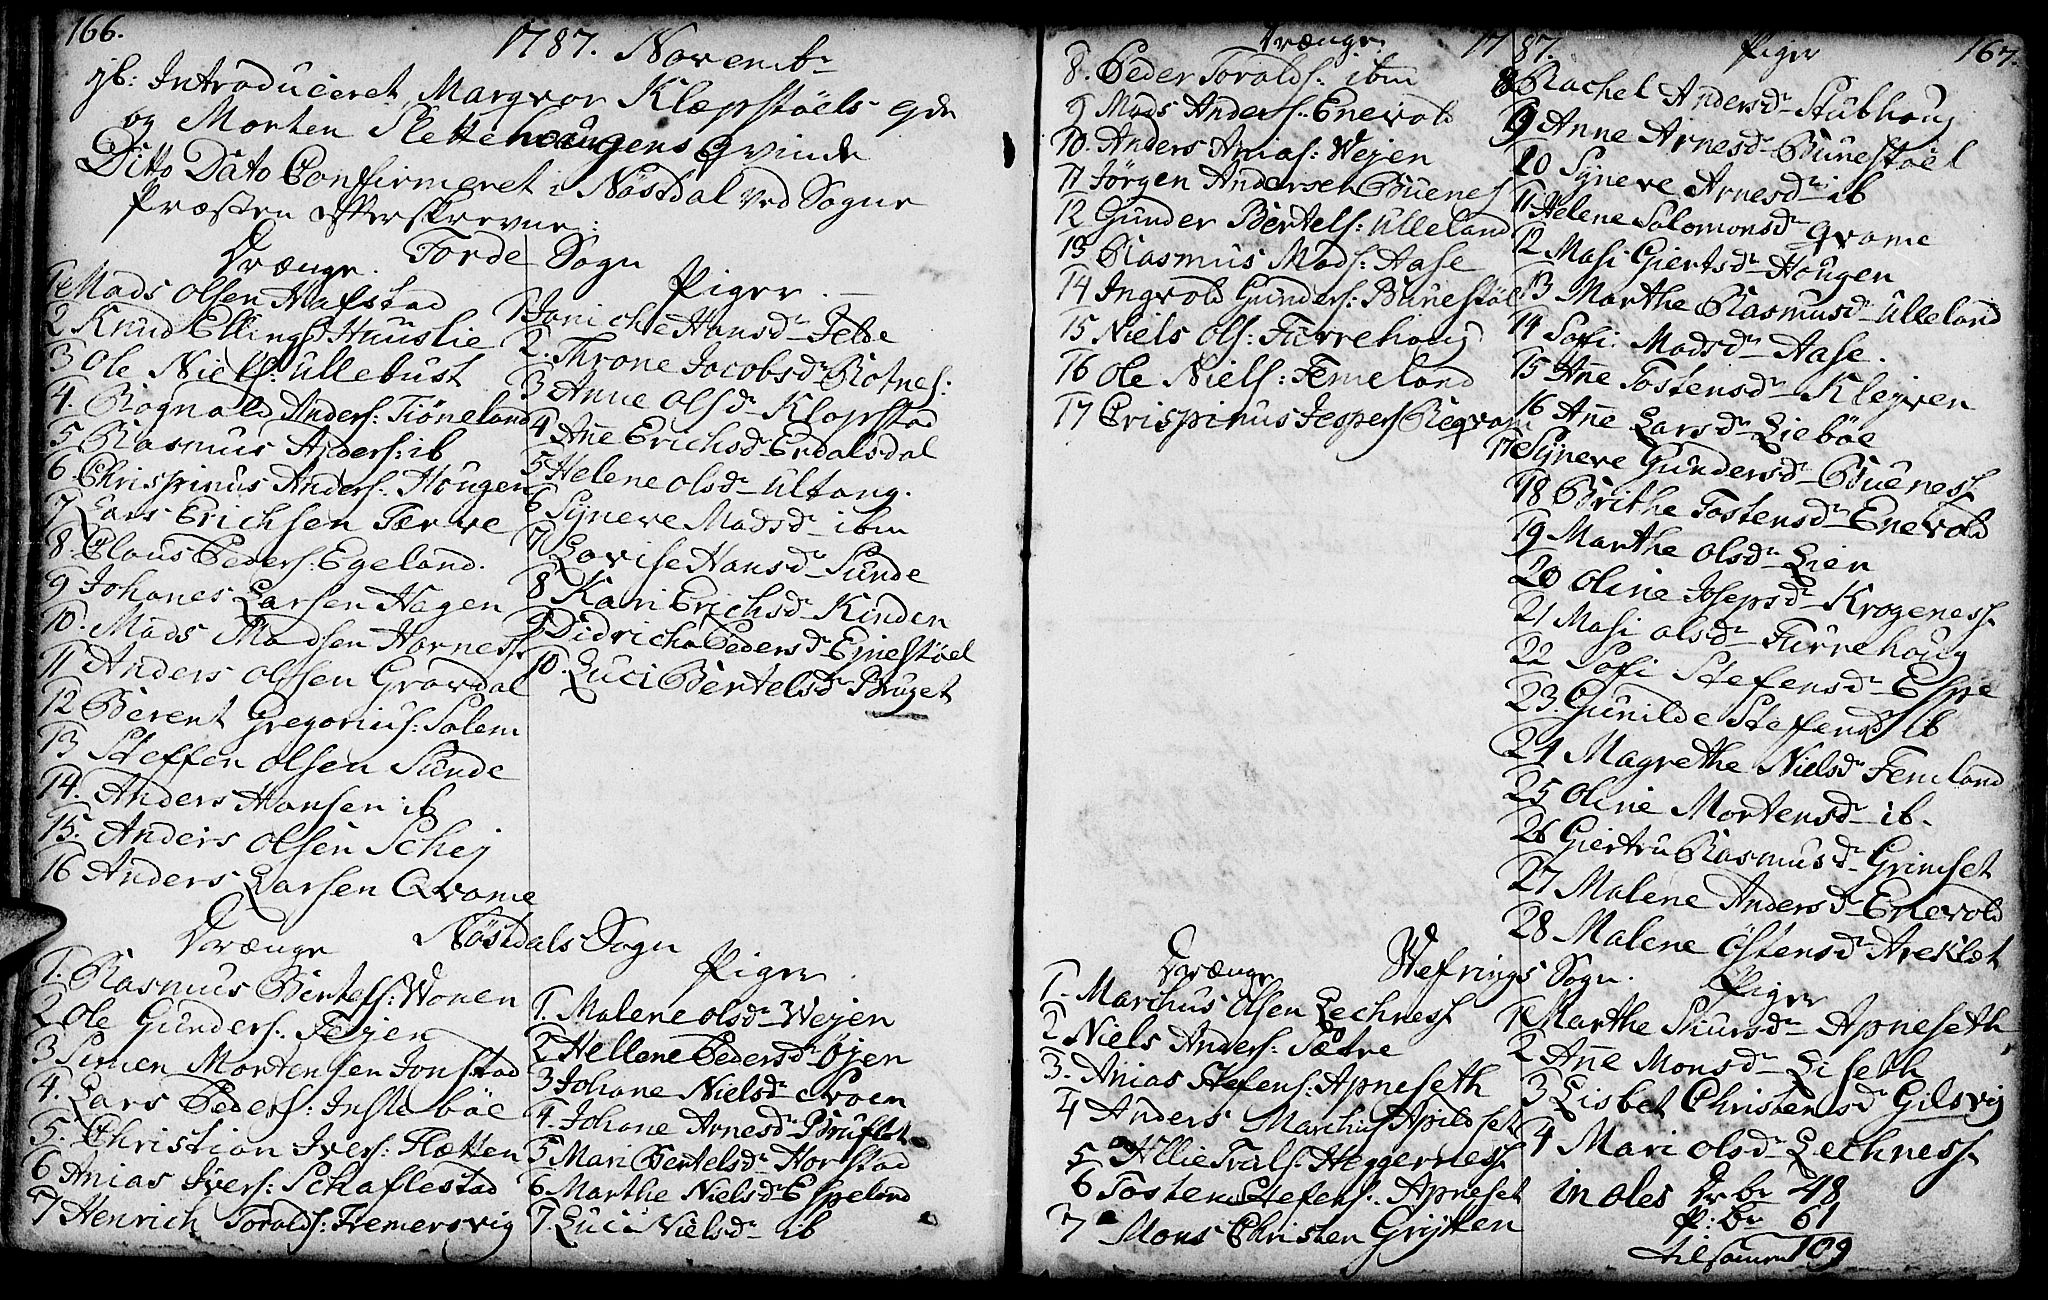 166.
1787. Novembr
jb: Introduceret Margvor Klæpstöels qde
og Morten Slettehougens Qvinde
Ditto Dato Confirmeret i Nöstdal ved Sogne
Præsten efterskrevne:
Förde Sogn
Drænge.
1 Mads Olsen Hafstad
2 Knud Ellings Huuslie
3 Ole Niels: Ullebust
4. Rognald Anders: Tiöneland
5 Rasmus Anders: ib
6. Chrispinus Anders: Hougen
7 Lars Erichsen Færve
8. Claus Peders: Egeland.
9 Johanes Larsen Hegen
10. Mads Madsen Hornes
11 Anders Olssen Grovdal
12 Berent Gregorius: Solem
13 Steffen Olsen Sunde
14. Anders Hansen ib
15. Anders Olsen Schej
16 Anders Larsen Qvame
Piger.
1 Joniche Hansdr Felde
2. Throne Jacobsdr Rotnes:
3 Anne Olsdr Klopstad
4 Añe Erichsdr Erdalsdal
5 Helene Olsdr Ultang.
6 Syneve Madsdr ibm
7 Lovise Hansdr Sunde
8 Kari Erichsdr Kinden
9 Didricha Pedersdr Ejnestöel
10. Luci Bertelsdr Bruget
Nöstdals Sogn
Drænge
1. Rasmus Bertels: Wonen
2 Ole Gunders. Tejen
3 Simen Mortensen Jonstad
4. Lars Peders: Insteböe
5. Christian Ivers: Flætten
6 Anias Ivers: Schaflestad
7 Henrich Toralds: Fremersvig
Piger
1. Malene Olsdr Wejen
2 Hellene Pedersdr Öjen
3 Johane Nielsdr Croen
4. Johane Arnesdr Bruflot
5 Mari Bertelsdr Horstad
6 Marthe Nielsdr Espeland
7. Luci Nielsdr ib
Drænge
1787.
Piger
167.
8. Peder Toralds: ibm
9 Mads Anders: Enevold
10. Anders Anias: Wejen
11 Jörgen Andersen Buenes
12 Gunder Bertels: Ulleland
13 Rasmus Mads: Aase
14 Ingvold Gunders: Bunestöl
15 Niels Ols: Furrehoug
16 Ole Niels: Femeland
17 Crispinus Jespers Reqvam
8 Rachel Andersdr Stubhoug
9 Anne Arnesdr Bunestöel
10 Syneve Arnesdr ib
11 Helene Salomonsdr Qvame
12 Masi Giertsdr Hougen
13 Marthe Rasmusdr Ulleland
14 Soffi Madsdr Aase.
15 Añe Tostensdr Klejven
16 Añe Larsdr Lieböe
17 Syneve Gundersdr Buenes
18 Brithe Tostensdr Enevold
19 Marthe Olsdr Lien
20 Oline Josepsdr Krogenes
21 Masi Olsdr Furrehoug
22 Soffi Stefensdr Espe
23 Gunilde Steffensdr ib
24 Magrethe Nielsdr Femland
25 Oline Mortensdr ib.
26 Giertru Rasmusdr Grimset
27 Malene Andersdr Enevold
28 Malene Östensdr Areklet
Wefrings Sogn.
Drænge
1. Marchus Olsen Lechness
2 Niels Anders: Sætre
3. Anias Stefens: Apneseth
4 Anders Marchus Apildset
5 Allie Trals: Heggernes
6 Tosten Stefens: Apneset
7 Mons Christen Grytten
Piger
1 Marthe Siursdr Apneseth
2 Añe Monsdr Liseth
3 Lisbet Christensdr Gilsvig
4 Mari Olsdr Lechness
in ales Dr br 48
P: br 61
tilsamen 109